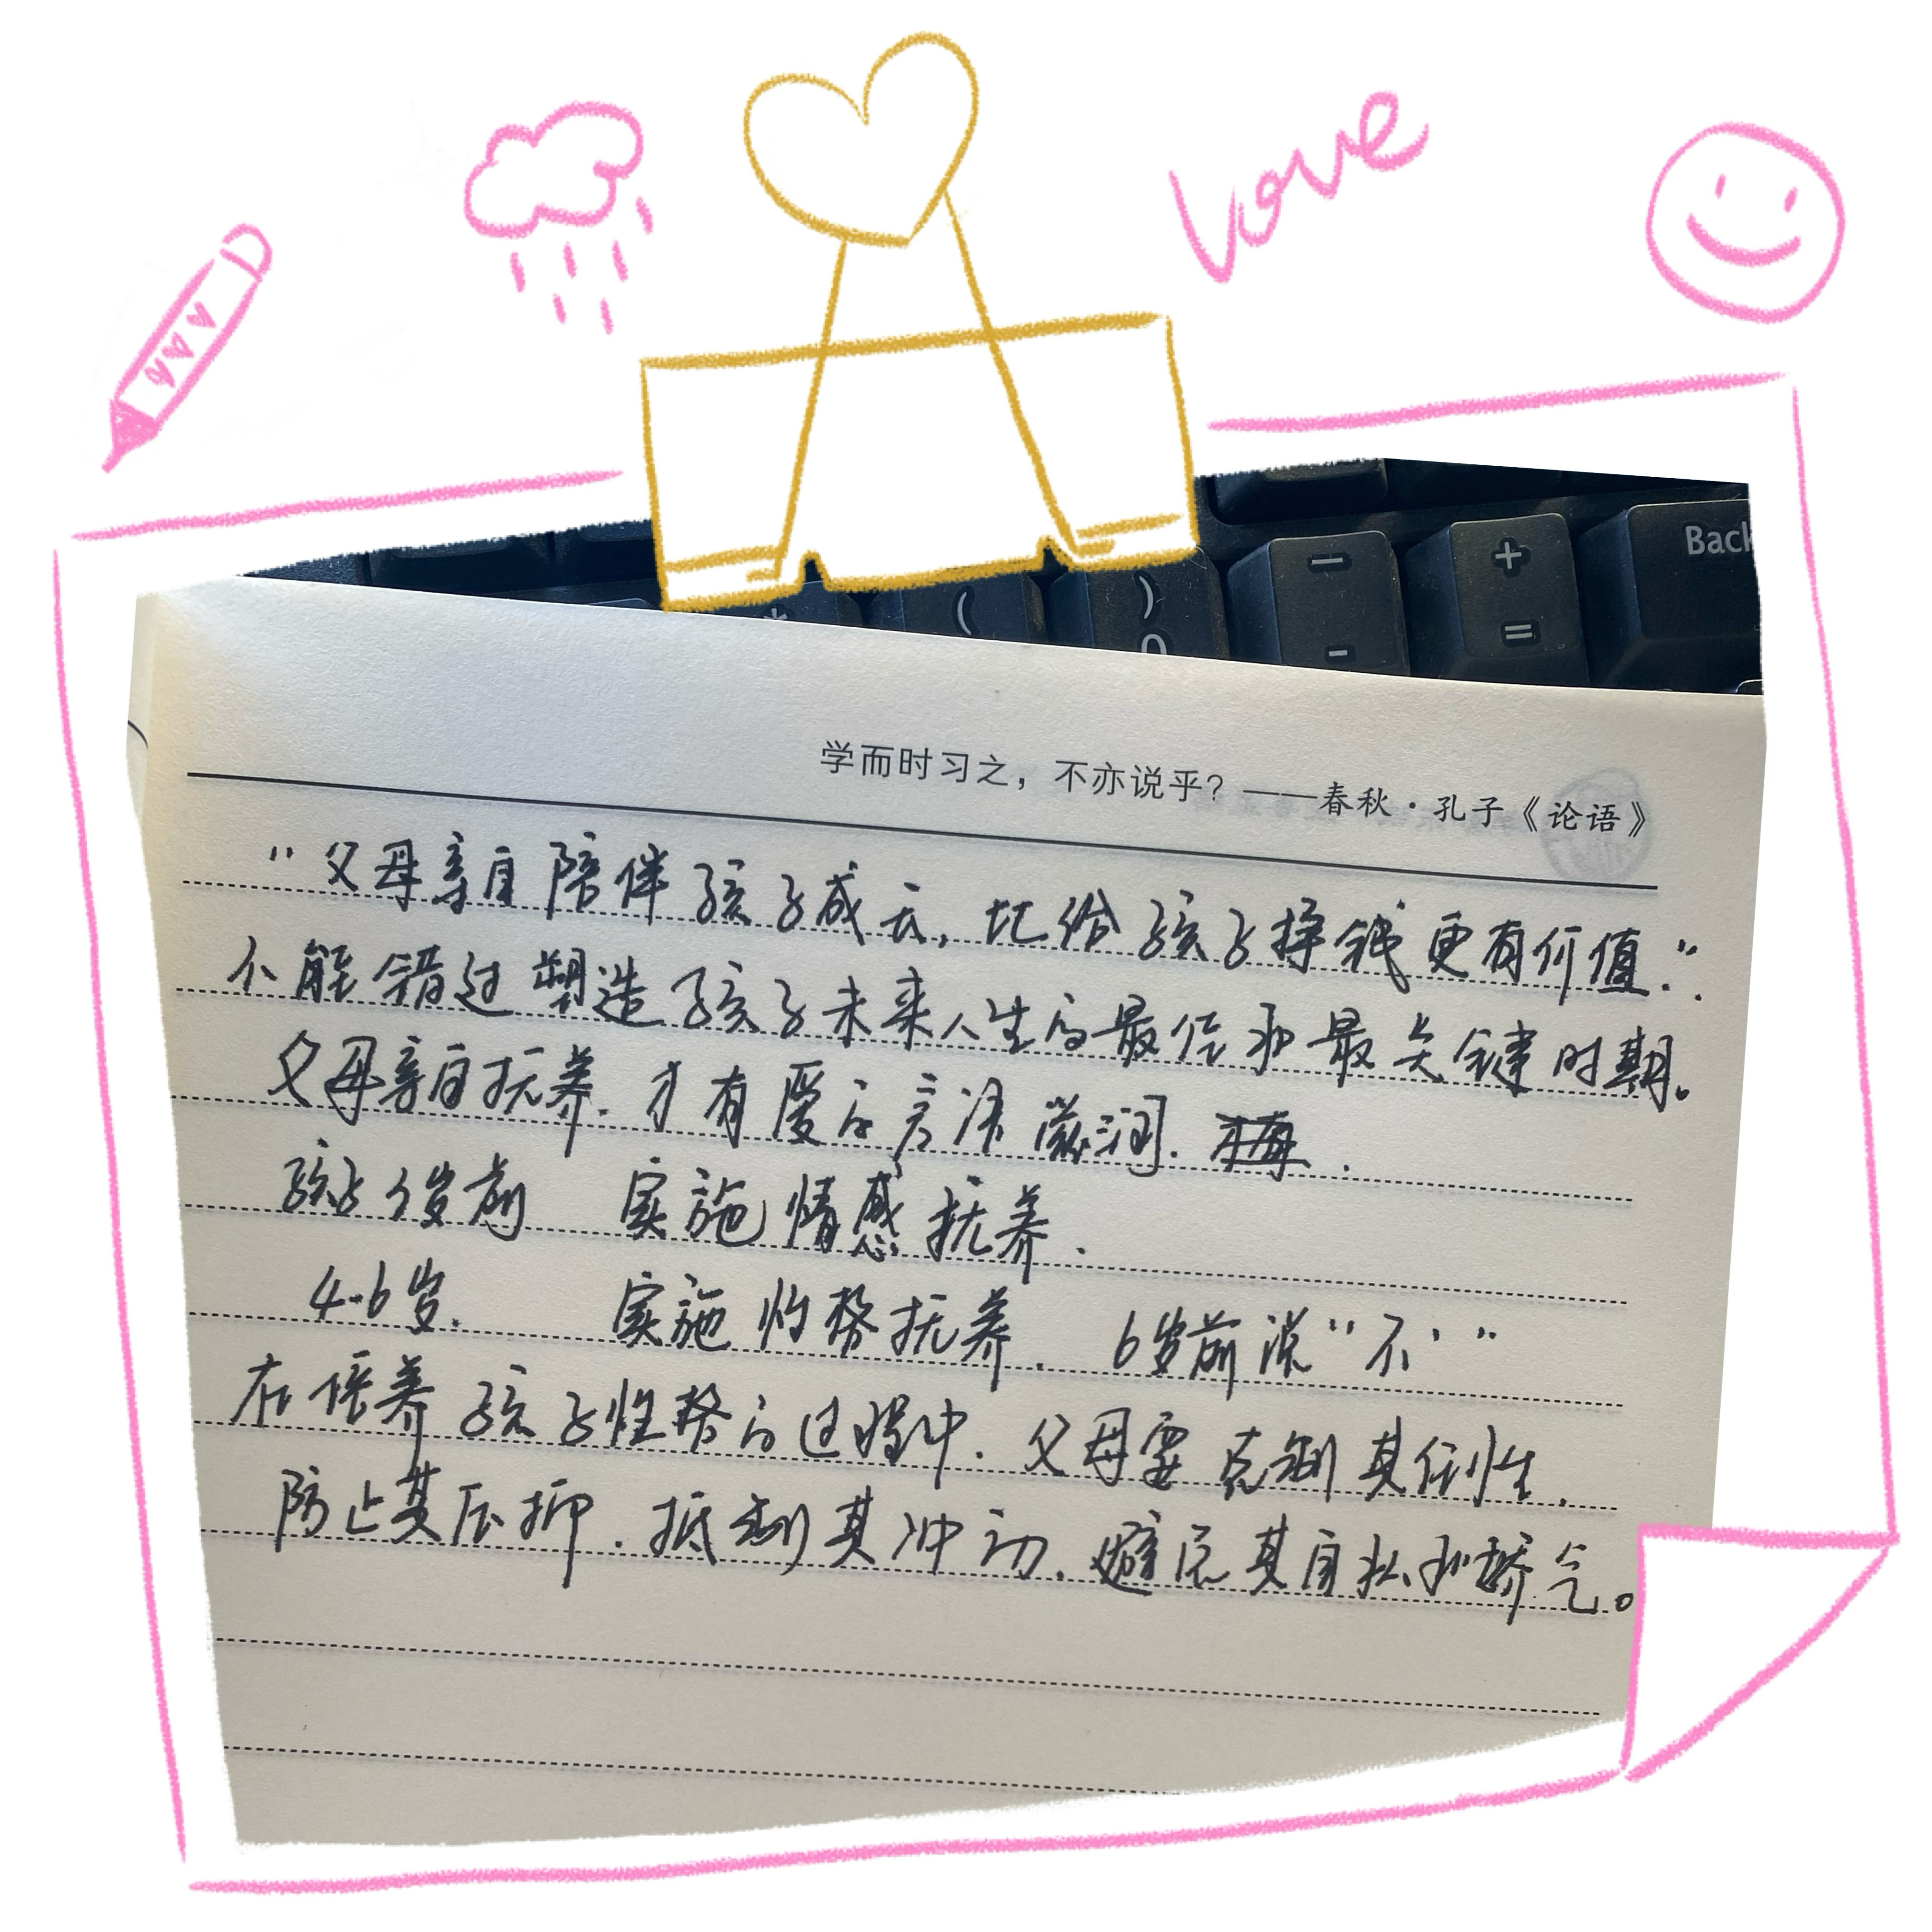 Love
Back
+
=
-
(
)
0
*
学而时习之，不亦说乎？——春秋·孔子《论语》
“父母亲自陪伴孩子成长，比给孩子挣钱更有价值.”.
不能错过塑造孩子未来人生的最佳和最关键时期。
父母亲自抚养.才有爱的言语滋润.
孩子 岁前 实施情感抚养.
4-6岁. 实施性格抚养. 6岁前说“不”
在培养孩子性格的过程中.父母要克制其任性.
防止其压抑.抵制其冲动.避免其自私和娇气。